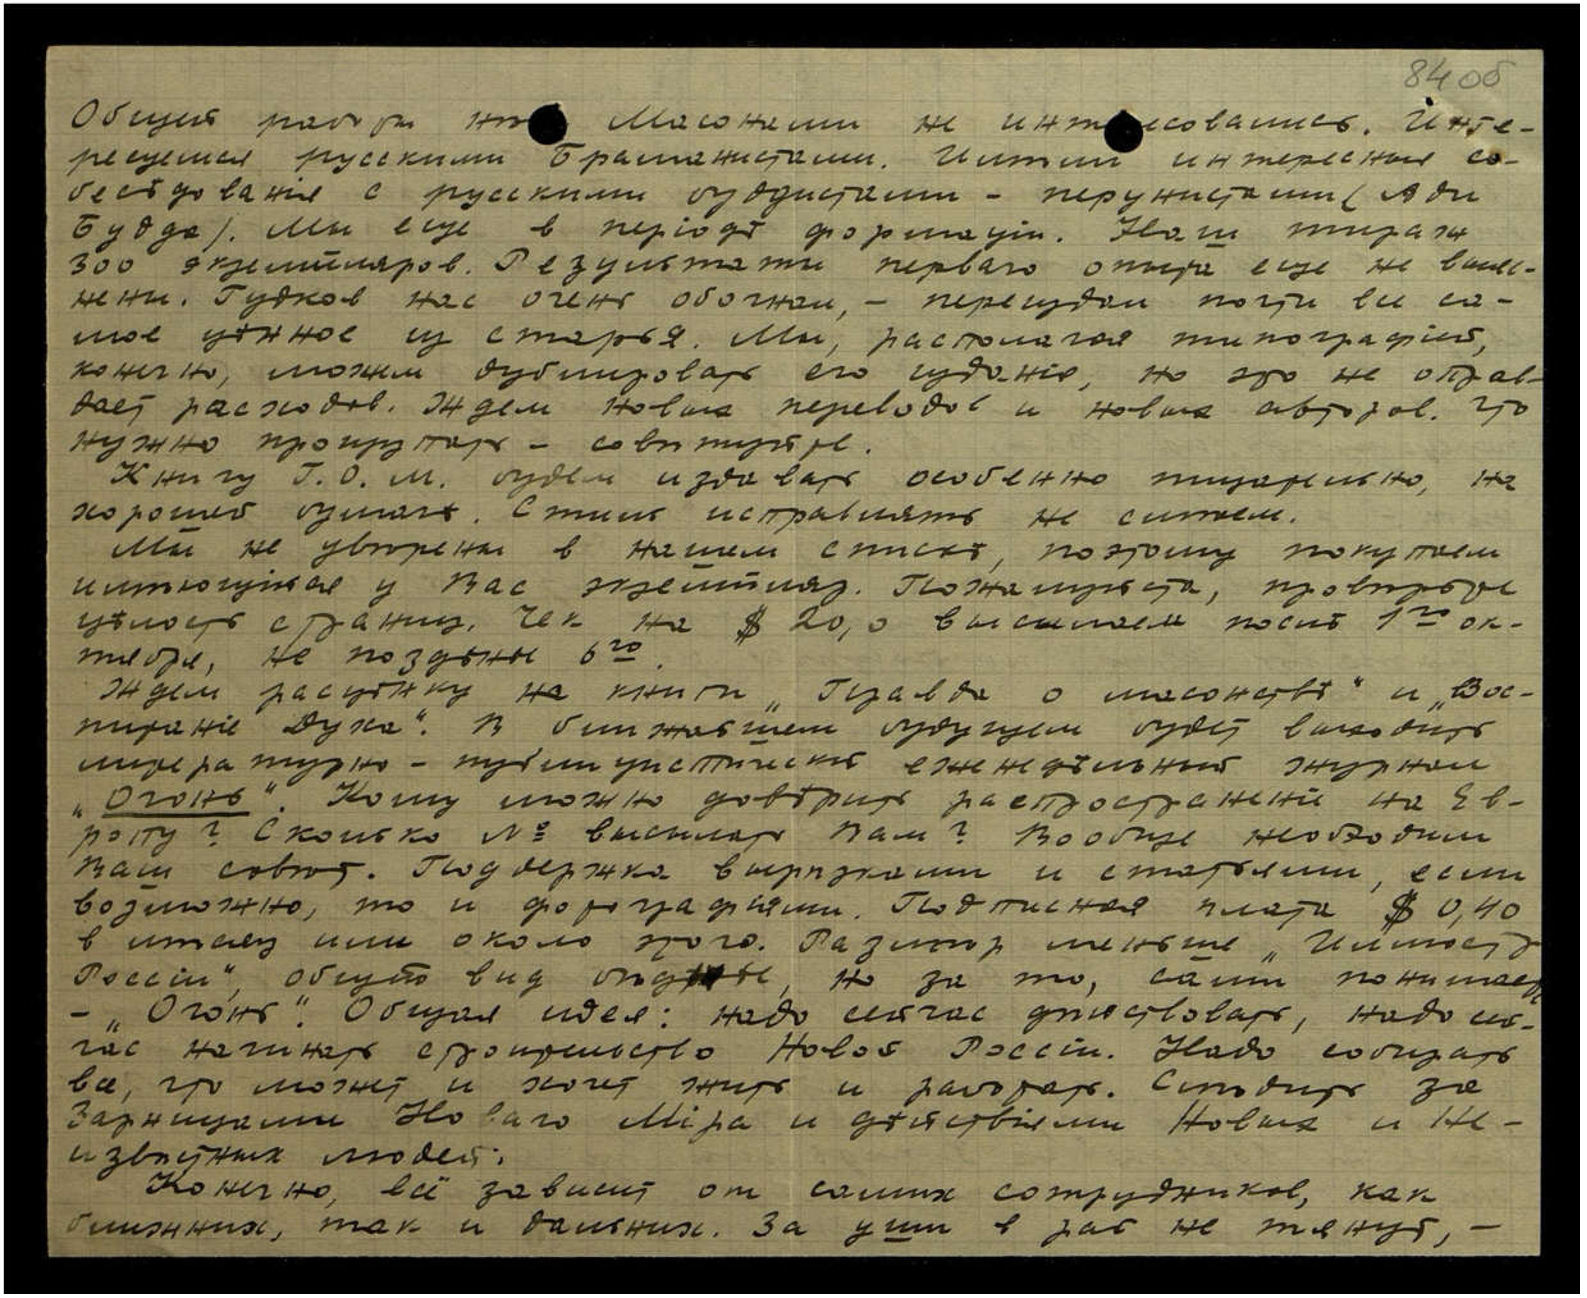 84 об
Общей работы Масонами не интересовались. Инте-
ресуемся русскими Браманистами. Имѣли интересныя со-
бесѣдованія с русскими буддистами - перунистами (Ади
Будда). Мы еще в періодѣ формаціи. Наш тираж
300 экземпляров. Результаты перваго опыта еще не выяс-
нены. Гудков нас очень обогнал, - переиздал почти все са-
мое цѣнное из старья. Мы, располагая типографіей,
конечно, можем дублировать его изданія, но это не оправ-
дает расходов. Ждем новых переводов и новых авторов. Что
нужно проштудировать - совѣтуйте.
Книгу Г.О.М. будем издавать особенно тщательно, на
хорошей бумагѣ. Стиль исправлять не смѣем.
Мы не увѣрены в нашем спискѣ, поэтому покупаем
имѣющійся у Вас экземпляр. Пожалуйста, провѣрьте
цѣлость страниц. Чек на $ 20,0 высылаем послѣ 1го ок-
тября, не позднѣе 6го.
Ждем расцѣнку на книги „Правда о масонствѣ“ и „Вос-
питаніе Духа“. В ближайшем будущем будет выходить
литературно-публицистическій еженедѣльный журнал
„Огонь“. Кому можно довѣрить распространеніе на Ев-
ропу? Сколько № высылать Вам? Вообще необходим
Ваш совѣт. Поддержка вырѣзками и статьями, если
возможно, то и фотографіями. Подписная плата $ 0,40
в мѣсяц или около этого. Размѣр меньше „Иллюстр
Россіи“, общій вид бѣднѣе, но за то, сами понимаете
- „Огонь“. Общая идея: надо сейчас дѣйствовать, надо сей-
час начинать строительство Новой Россіи. Надо собирать
все, что может и хочет жить и работать. Слѣдить за
Зарницами Новаго Міра и дѣйствіями Новых и Не-
извѣстных людей.
Конечно, всё зависит от самих сотрудников, как
ближних, так и дальних. За уши в рай не тянут, -